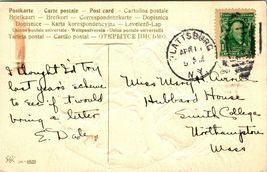 Postkarte Carte postale Post card Cartolina postale
Briefkaart Brefkort Correspondenzkarte Dopisnice
Dopisnica Brevkort Korespondenzkarte Levelező-Lap
Union postale universelle Weltpostverein Unione postale universale
Tarjeta postal Cartão postal ОТКРЫТОЕ ПИСЬМО.
PLATTSBURG
APR
N.Y.
I thought I'd try
last year's scheme
to see if it would
bring a letter
E. D.
Miss Mary
Hubbard House
Smith College
Northampton
Mass